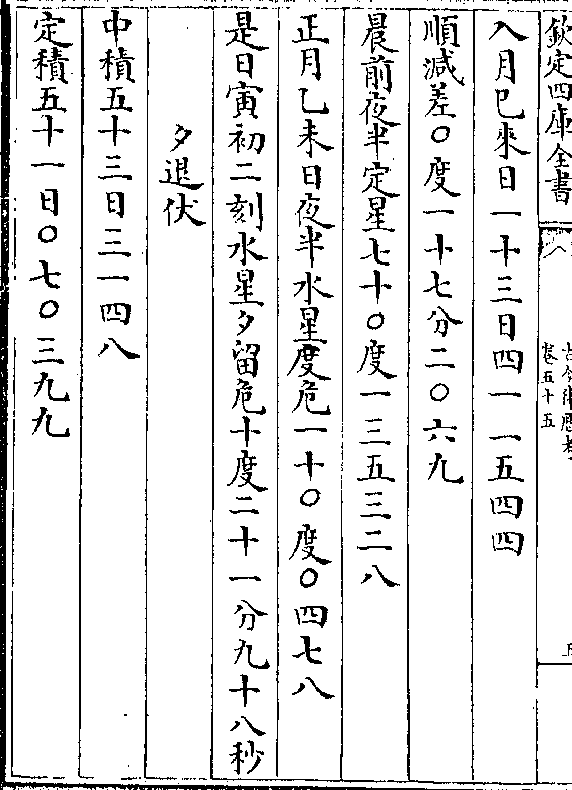 欽定四庫全書
古今律歴考
卷五十五
入月已來日一十三日四一一五四四
順減差〇度一十七分二〇六九
晨前夜半定星七十〇度一三五三二八
正月乙未日夜半水星度危一十〇度〇四七八
是日寅初二刻水星夕留危十度二十一分九十八秒
夕退伏
中積五十三日三一四八
定積五十一日〇七〇三九九